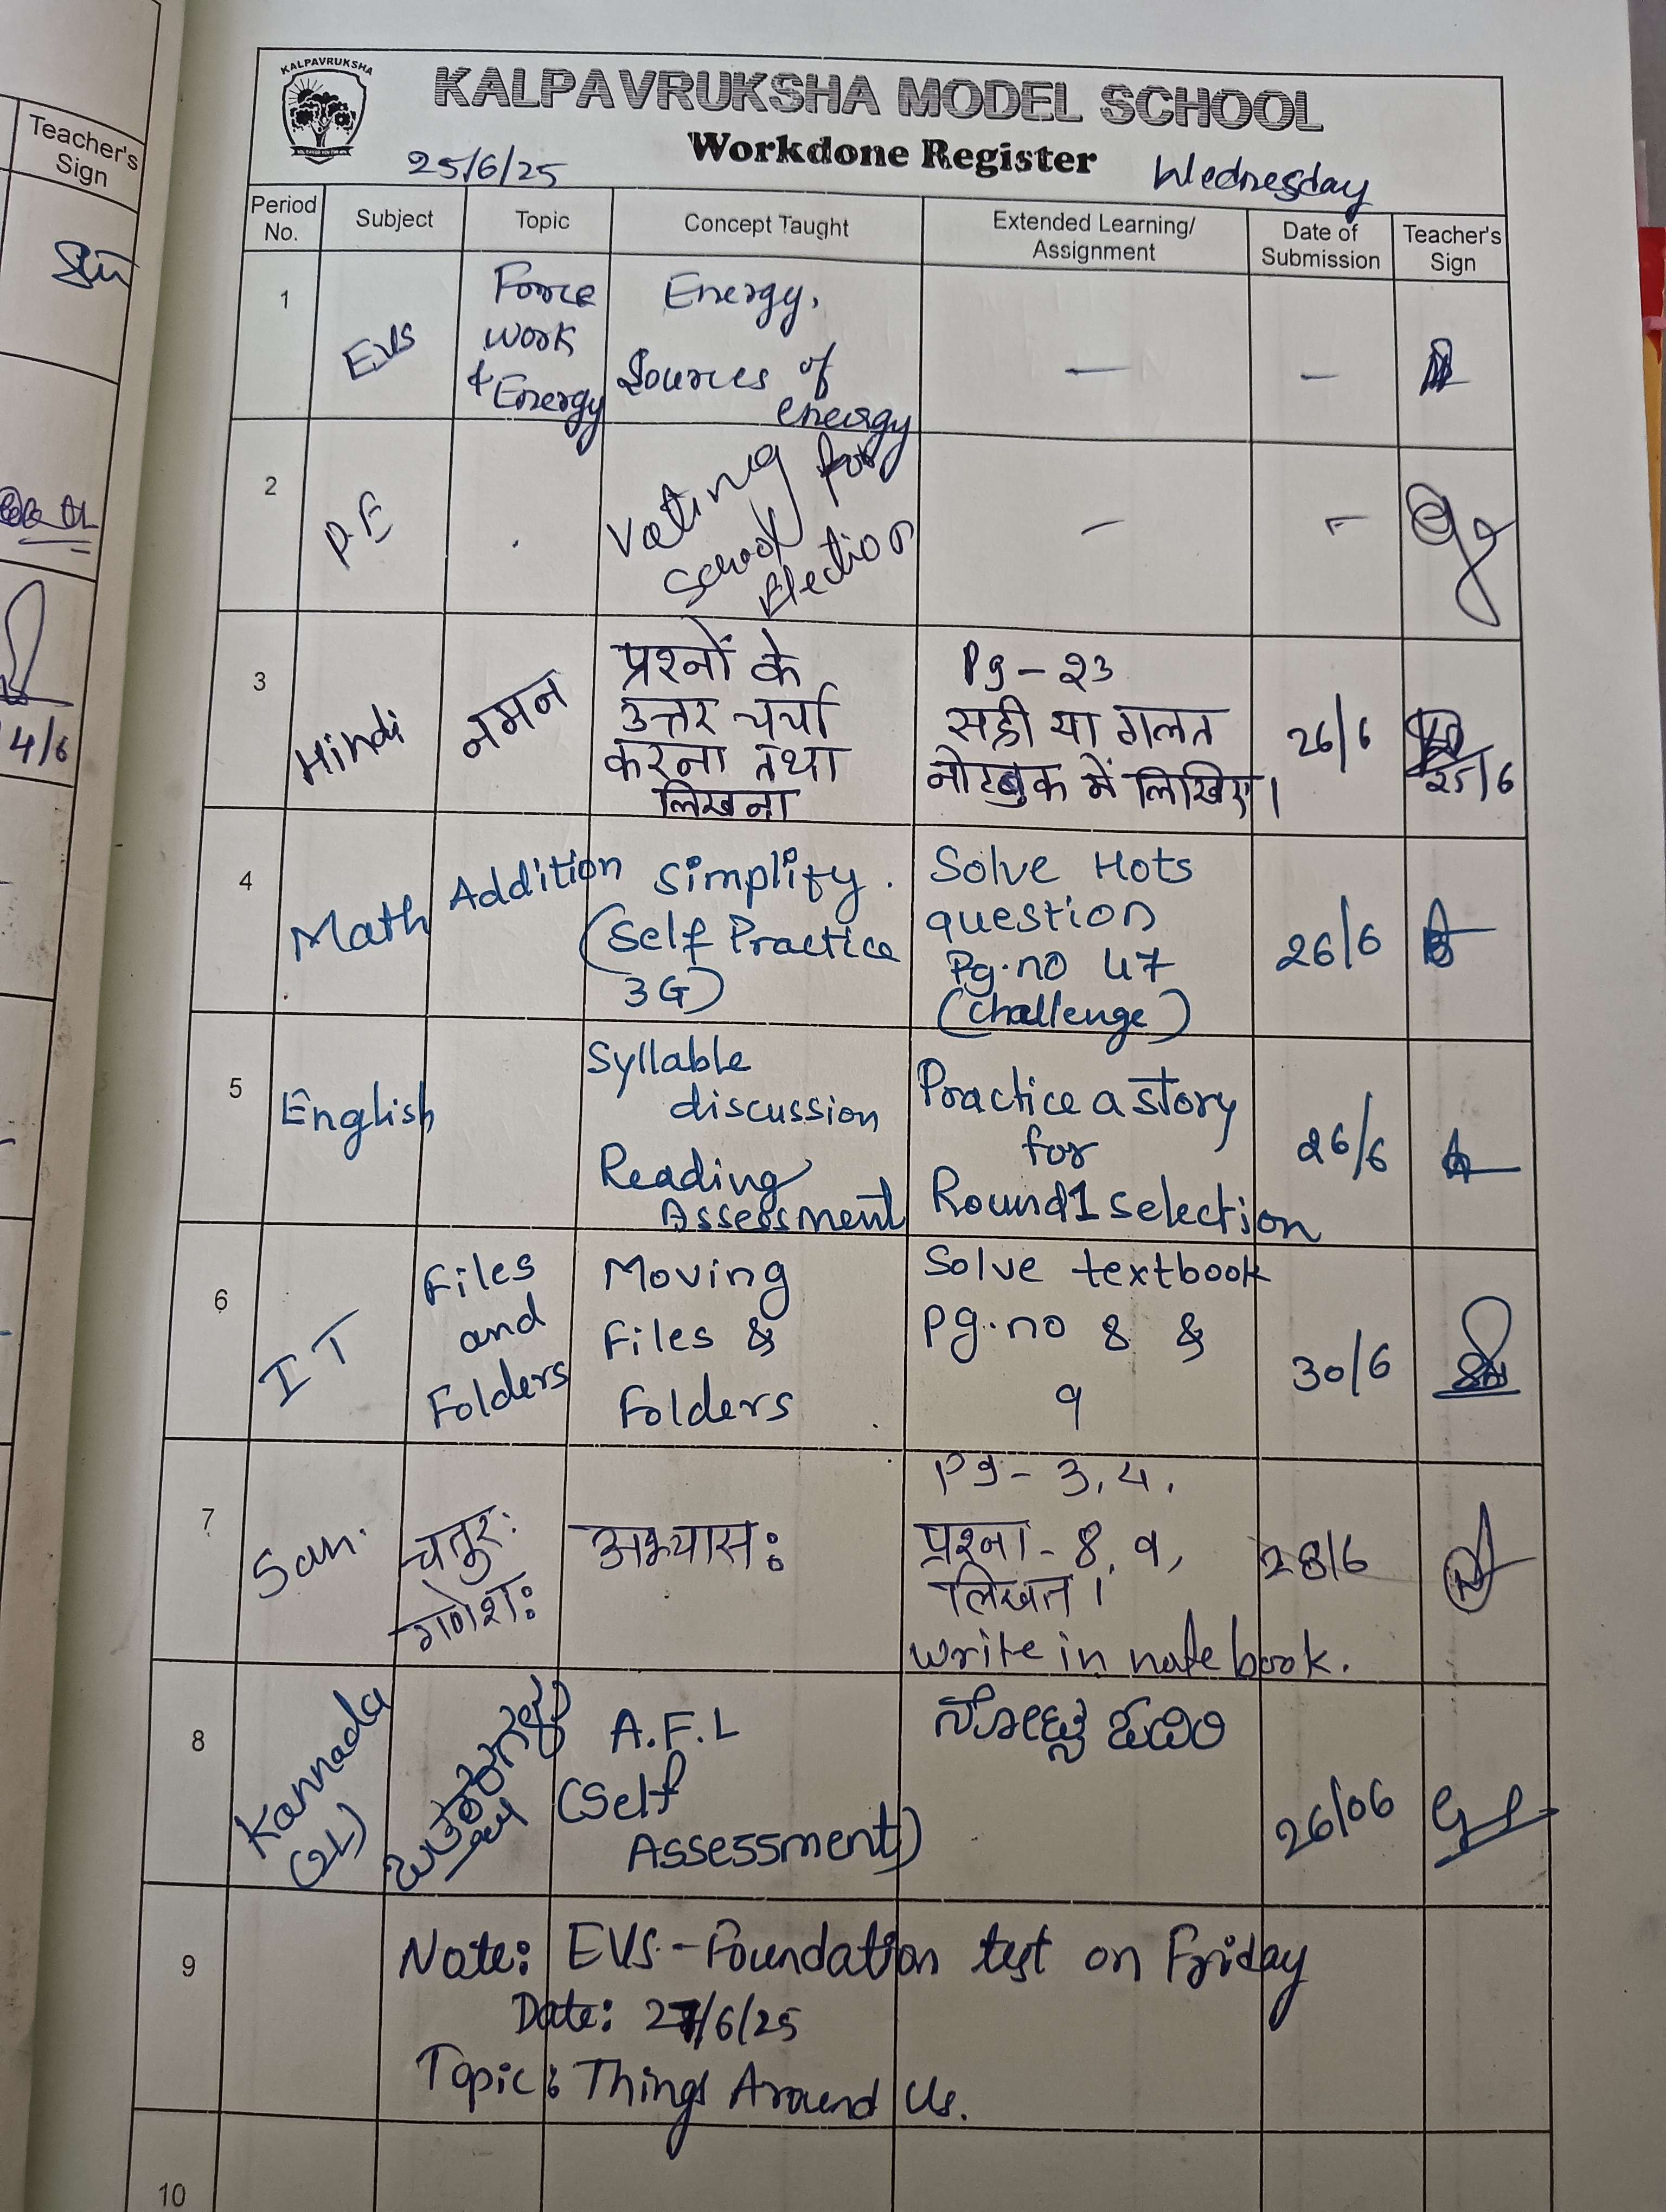 Teacher's
Sign
4/6
KALPAVRUKSHA
KALPAVRUKSHA MODEL SCHOOL
Workdone Register
25/6/25
Wednesday
Period No. Subject Topic Concept Taught Extended Learning/ Assignment Date of Submission Teacher's Sign
1 EVS Force work & Energy Energy, Sources of energy — —
2 P.E Votting for school Election — –
3 Hindi नमन प्रश्नों के उत्तर चर्चा करना तथा लिखना Pg - 23 सही या गलत नोटबुक में लिखिए। 26/6 25/6
4 Math Addition Simplify. (Self Practice 3G) Solve Hots question Pg.no 47 (challenge) 26/6
5 English Syllable discussion Reading Assessment Practice a story for Round 1 selection 26/6
6 IT Files and Folders Moving Files & Folders Solve textbook Pg.no 8 & 9 30/6
7 San. चतुरः गणेशः अभ्यासः Pg - 3, 4. प्रश्ना - 8, 9, लिखत। write in note book. 28/6
8 Kannada (2L) A.F.L (Self Assessment) 26/06
9 Note: EVS - Foundation test on Friday
Date: 27/6/25
Topic: Things Around Us.
10